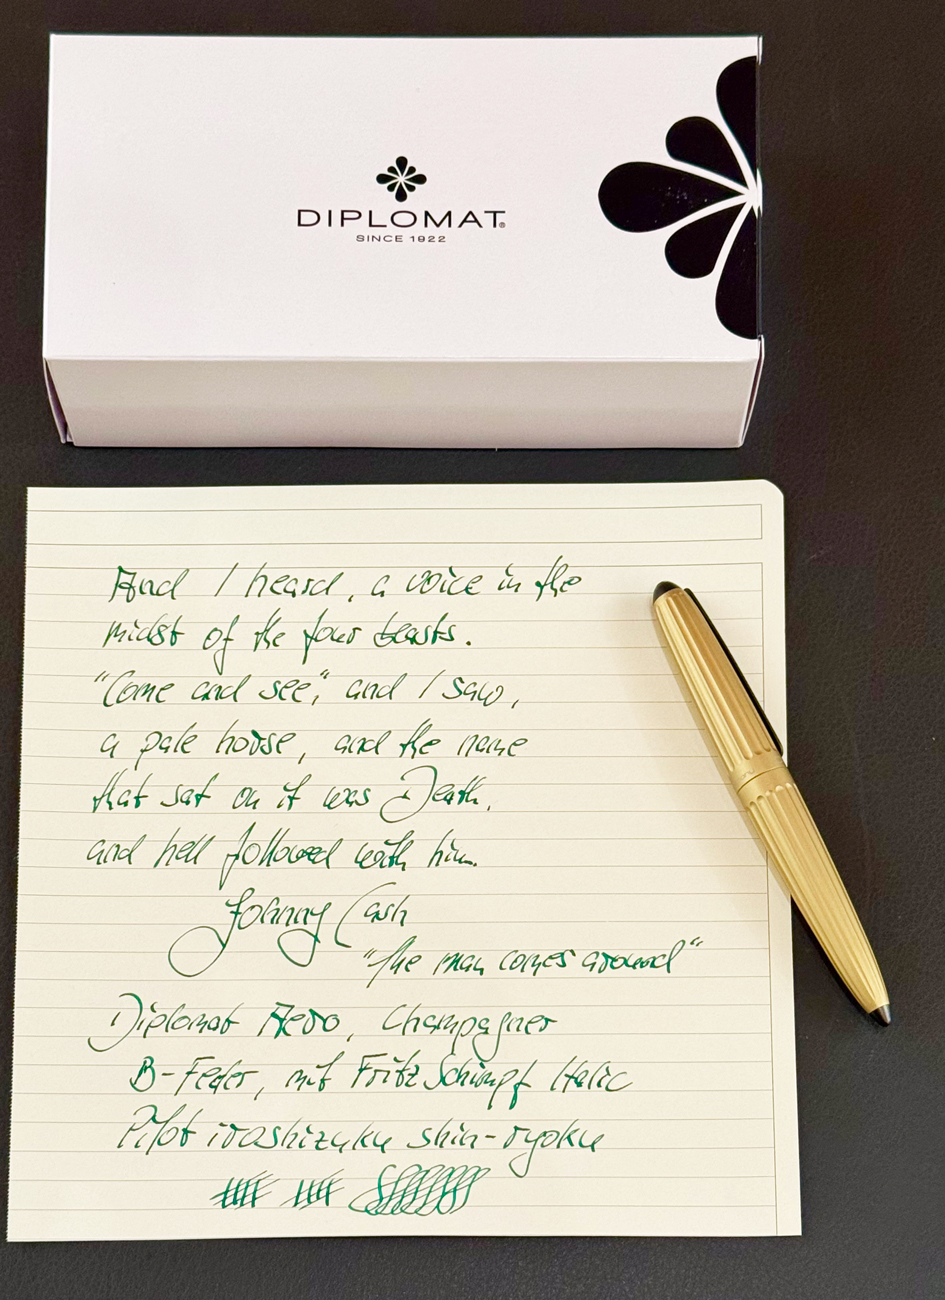 DIPLOMAT®
SINCE 1922
And I heard, a voice in the
midst of the four beasts.
"Come and see," and I saw,
a pale horse, and the name
that sat on it was Death,
and hell followed with him.
Johnny Cash
"the man comes around"
Diplomat Aero, Champagner
B-Feder, mit Fritz Schimpf Italic
Pilot iroshizuku shin-ryoku